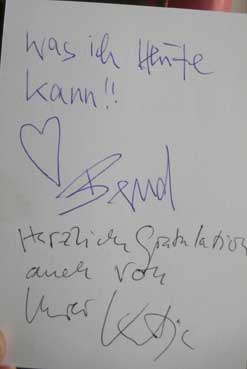 Was ich Heute
kann!!
Bernd
Herzlichen Gratulation
auch von